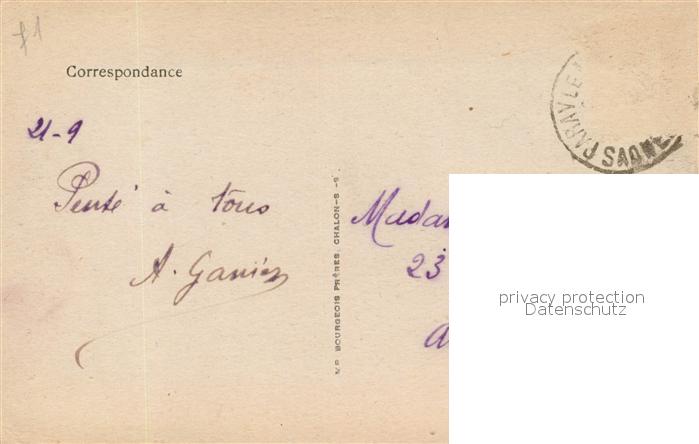 f1
Correspondance
21-9
Pensé à tous
A. Ganiez
PARAY LE
SAONE
BOURGEOIS FRÈRES, CHALON-S-S
Madam
23
a
privacy protection
Datenschutz